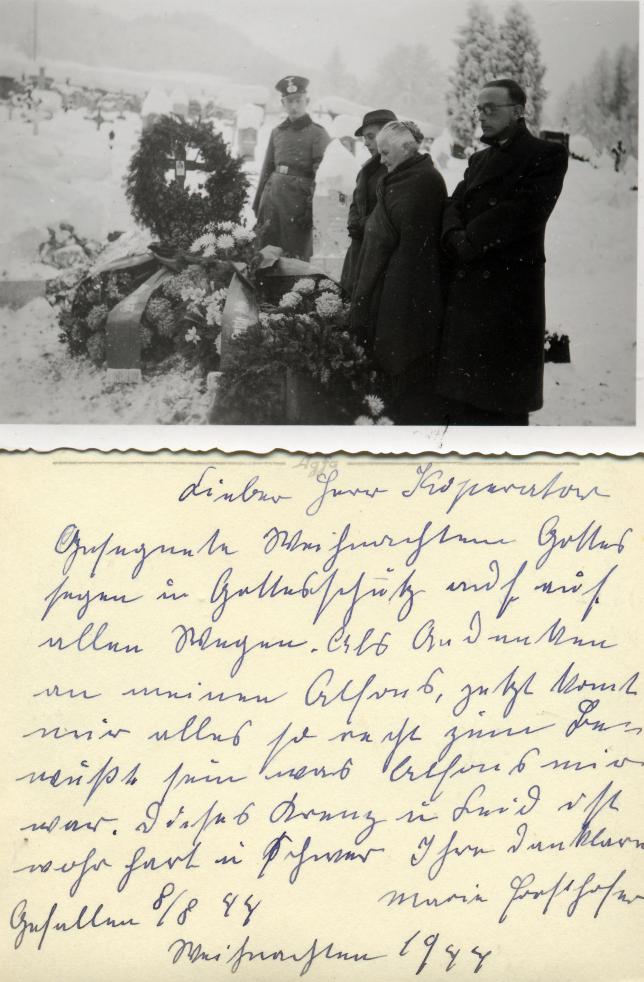 Agfa
Lieber Herr Koperator
Gesegnete Weihnachten Gottes
segen u Gottesschutz auf
allen Wegen. Als Andenken
an meinen Alfons, jetzt komt
mir alles so recht zum Be-
wußt sein was Alfons mir
war. Dieses Kreuz u Leid ist
wohr hart u Schwer Ihre dankbare
Marie Forsthofer
Gefallen 8/8 44
Weihnachten 1944